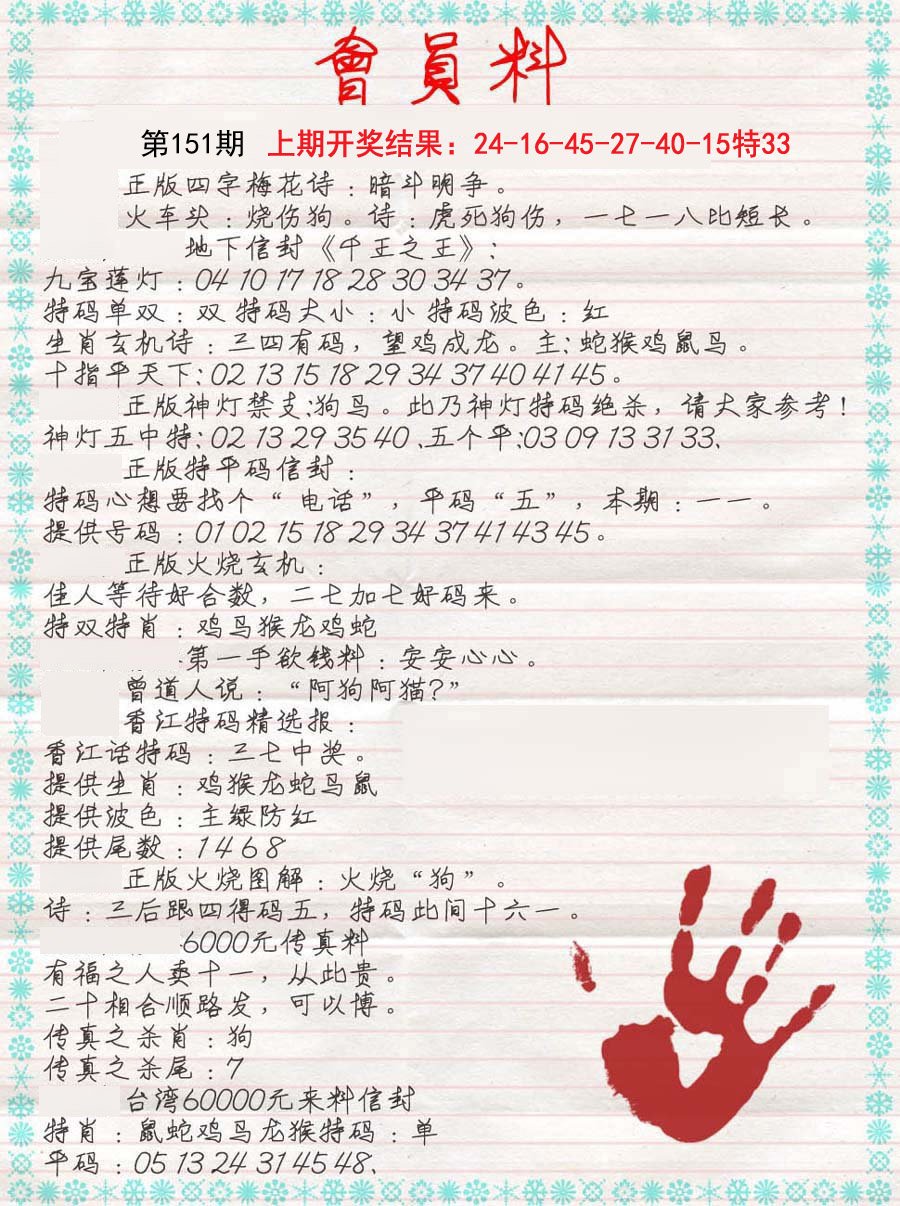 會員料
第151期 上期开奖结果：24-16-45-27-40-15特33
正版四字梅花诗：暗斗明争。
火车头：烧伤狗。诗：虎死狗伤，一七一八比短长。
地下信封《千王之王》：
九宝莲灯：04 10 17 18 28 30 34 37。
特码单双：双 特码大小：小 特码波色：红
生肖玄机诗：三四有码，望鸡成龙。主：蛇猴鸡鼠马。
十指平天下：02 13 15 18 29 34 37 40 41 45。
正版神灯禁支：狗马。此乃神灯特码绝杀，请大家参考！
神灯五中特：02 13 29 35 40 、五个平：03 09 13 31 33、
正版特平码信封：
特码心想要找个“电话”，平码“五”，本期：一一。
提供号码：01 02 15 18 29 34 37 41 43 45。
正版火烧玄机：
佳人等待好合数，二七加七好码来。
特双特肖：鸡马猴龙鸡蛇
第一手欲钱料：安安心心。
曾道人说：“阿狗阿猫？”
香江特码精选报：
香江话特码：三七中奖。
提供生肖：鸡猴龙蛇马鼠
提供波色：主绿防红
提供尾数：1 4 6 8
正版火烧图解：火烧“狗”。
诗：三后跟四得码五，特码此间十六一。
6000元传真料
有福之人卖十一，从此贵。
二十相合顺路发，可以博。
传真之杀肖：狗
传真之杀尾：7
台湾60000元来料信封
特肖：鼠蛇鸡马龙猴特码：单
平码：05 13 24 31 45 48、